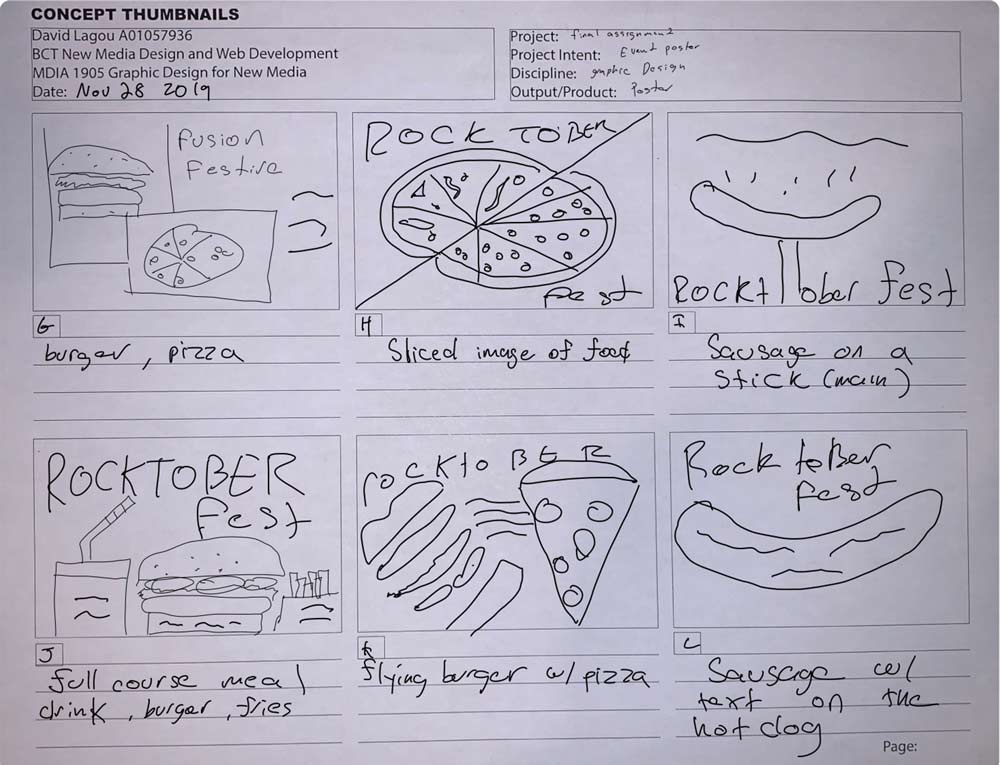 CONCEPT THUMBNAILS
David Lagou A01057936
BCT New Media Design and Web Development
MDIA 1905 Graphic Design for New Media
Date: Nov 28 2019
Project: final assignment
Project Intent: Event poster
Discipline: graphic Design
Output/Product: Poster
Fusion
Festive
ROCKTOBER
fest
Rocktober fest
G
burger, pizza
H
Sliced image of food
I
Sausage on a
stick (main)
ROCKTOBER
fest
rocktoBER
Rocktober
fest
J
full course meal
drink, burger, fries
K
flying burger w/ pizza
L
Sausage w/
text on the
hotdog
Page: